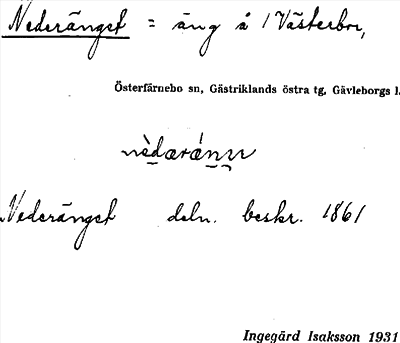 Nederänget = äng å 1 Västerbor,
Österfärnebo sn, Gästriklands östra tg, Gävleborgs l.
Nederänget deln. beskr. 1861
Ingegärd Isaksson 1931